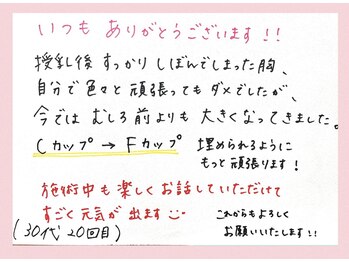 いつも ありがとうございます!!
授乳後 すっかり しぼんでしまった胸、
自分で色々と 頑張っても ダメでしたが、
今では むしろ 前よりも 大きくなってきました。
Cカップ → Fカップ 埋められるように
もっと頑張ります!
施術中も 楽しく お話していただけて
すごく 元気が 出ます
これからもよろしく
お願いいたします!!
(30代 20回目)